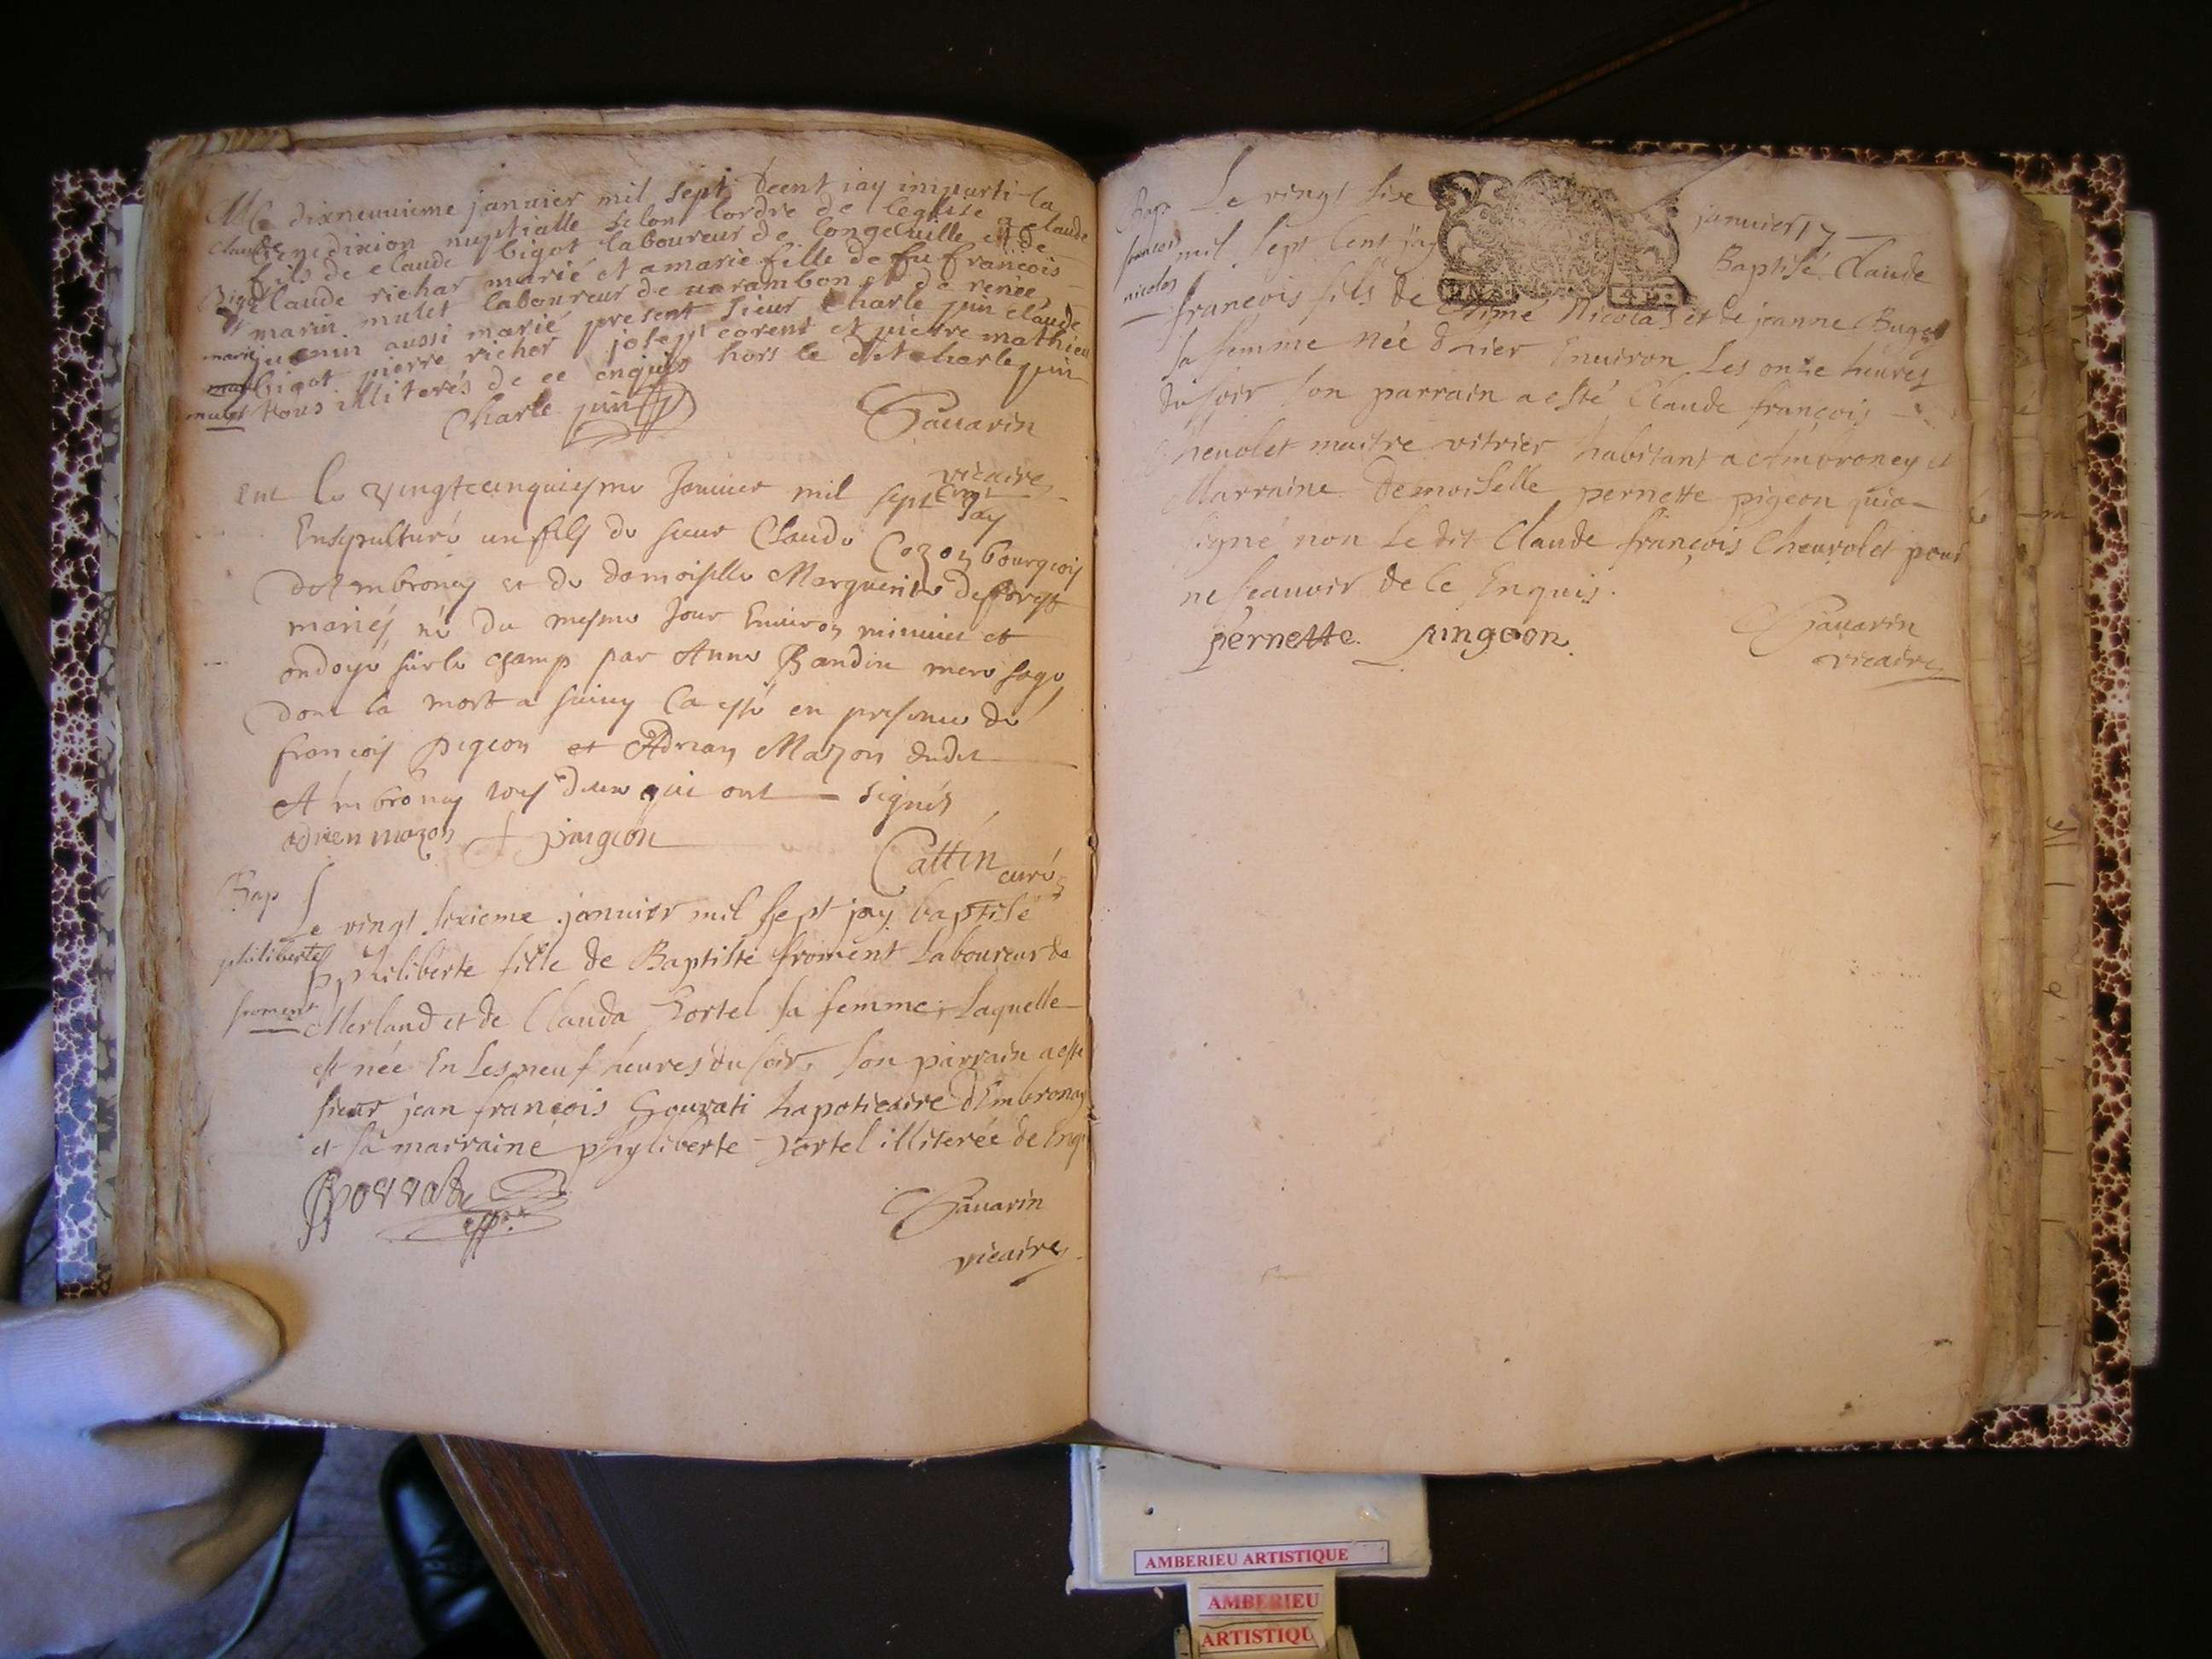 Le dixneuuieme januier mil sept cent iay imparti la
benedixion nuptialle selon lordre de leglise a claude
fils de claude bigot laboureur de longeuille et de
claude richar marié et a marie fille de fu francois
mulet laboureur de uarambon et de renee
marin aussi marié present sieur Charle juin claude
juenin pierre richar joseph corent et pierre mathieu
bigot tous illiterés de ce enquis hors le dit charle juin
claude
Bigot
marie
mulet
Charle juin
Sauarin
vicaire
Ent Le vingtcinquiesme Januier mil sept cent Jay
Ensepulturé un fils du sieur Claude Cozon bourgeois
dot embronay et de damoiselle Marguerite Deforest
mariés né du mesme Jour Enuiron minuict et
ondoyé sur le champ par Anne Bandin mere sage
dont la mort a suiuy Ca esté en presence de
francois pigeon et Adrian Mazon dudit
Ambronay tous deux qui ont signés
adrien mazon f pingeon
Cattin curé
Bap
philiberte
froment
Le vingt sixieme januier mil sept jay baptisé
philiberte fille de Baptiste froment Laboureur de
Merland et de Clauda Gortel sa femme, Laquelle
est née En Les neuf heures du soir, son parrain a esté
sieur jean francois Gourati hapoticaire d'Embronay
et sa marraine phyliberte Gortel illiterée de Enq
Sauarin
vicaire
Bap
francois
nicolas
Le vingt sixe januier 17
mil sept Cent jay Baptisé Claude
francois fils de Aymé Nicolas et de jeanne Buget
sa femme née d'hier Enuiron Les onze heures
du soir son parrain a esté Claude françois
Cheuolet maitre vitrier habitant a Ambroney et
Marraine Demoiselle pernette pigeon qui a
signé non Le dit Claude françois Cheurolet pour
ne sçauoir de Ce Enquis.
pernette pingeon.
Sauarin
vicaire
AMBERIEU ARTISTIQUE
AMBERIEU
ARTISTIQU